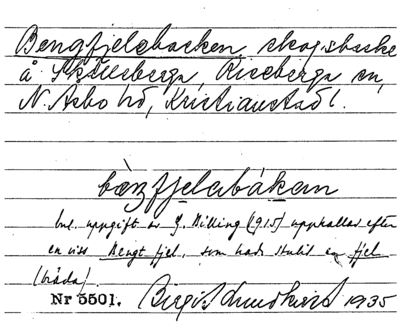 Bengfjelebacken, skogsbacke
å Skälleberga, Riseberga sn,
N. Åsbo hd, Kristianstad l.
bæ̀ŋfjelabákan
enl. uppgift av G. Billing (1915) uppkallas efter
en viss Bengt fjel, som hade stulit en fjel
(bräda).
Nr 5501. Birgit Lundkvist 1935